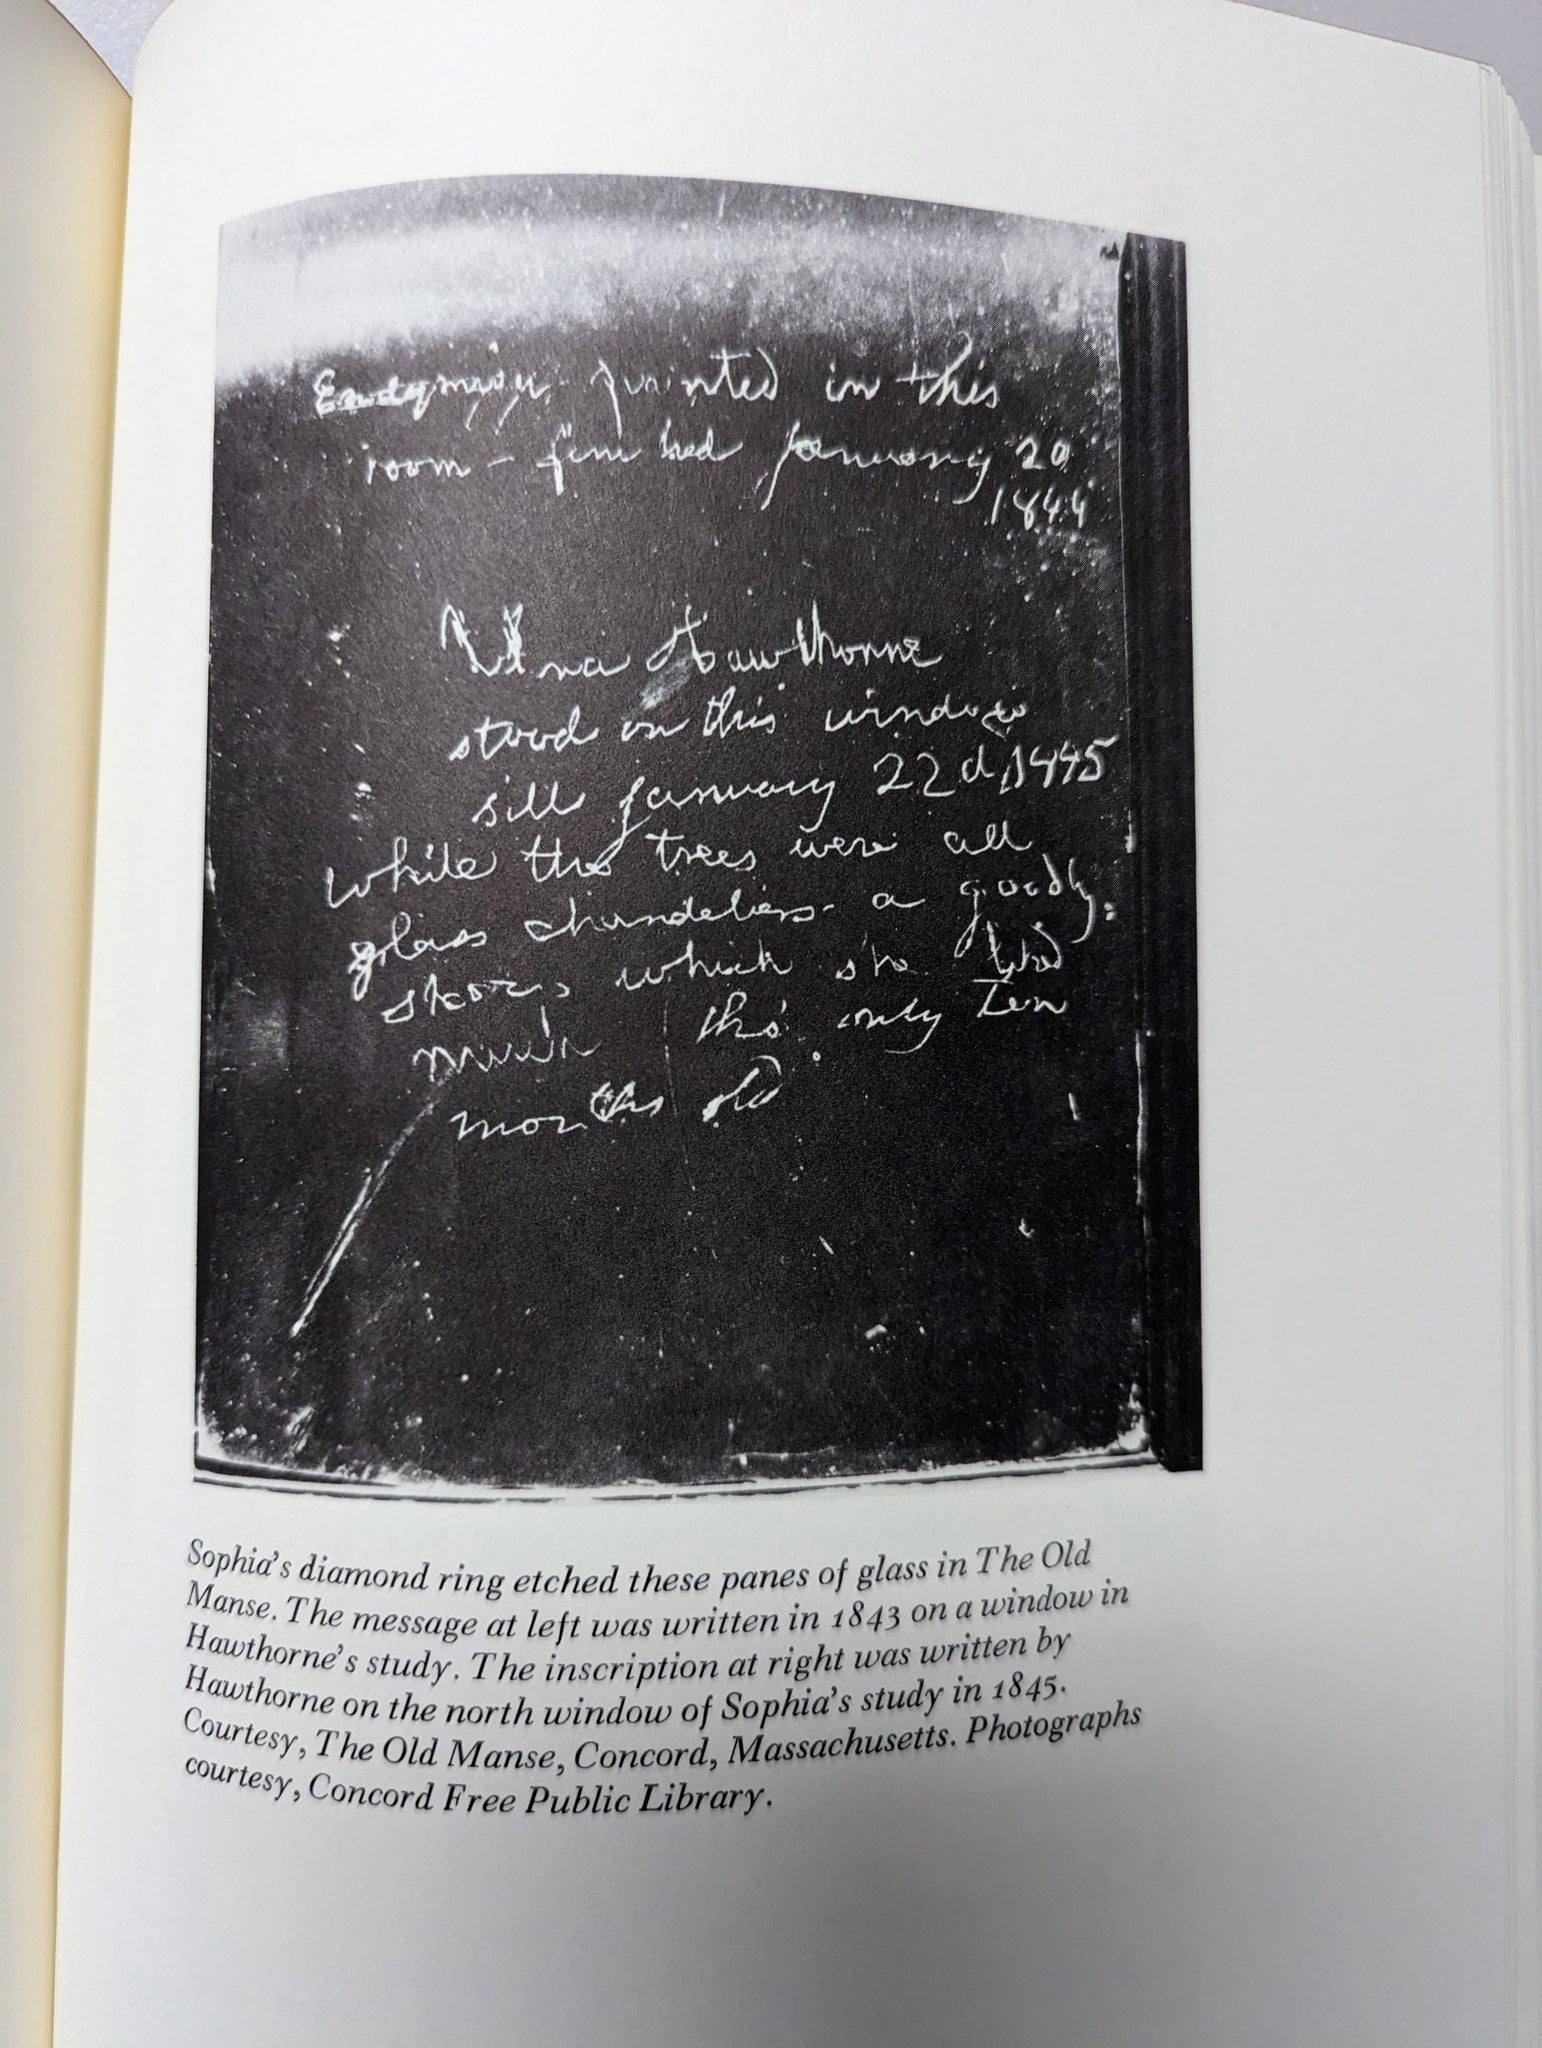 Endymion painted in this
room - finished January 20
1844
Una Hawthorne
stood on this window
sill January 22d 1845
while the trees were all
glass chandeliers - a goodly
show, which she liked
much tho' only ten
months old
Sophia's diamond ring etched these panes of glass in The Old
Manse. The message at left was written in 1843 on a window in
Hawthorne's study. The inscription at right was written by
Hawthorne on the north window of Sophia's study in 1845.
Courtesy, The Old Manse, Concord, Massachusetts. Photographs
courtesy, Concord Free Public Library.